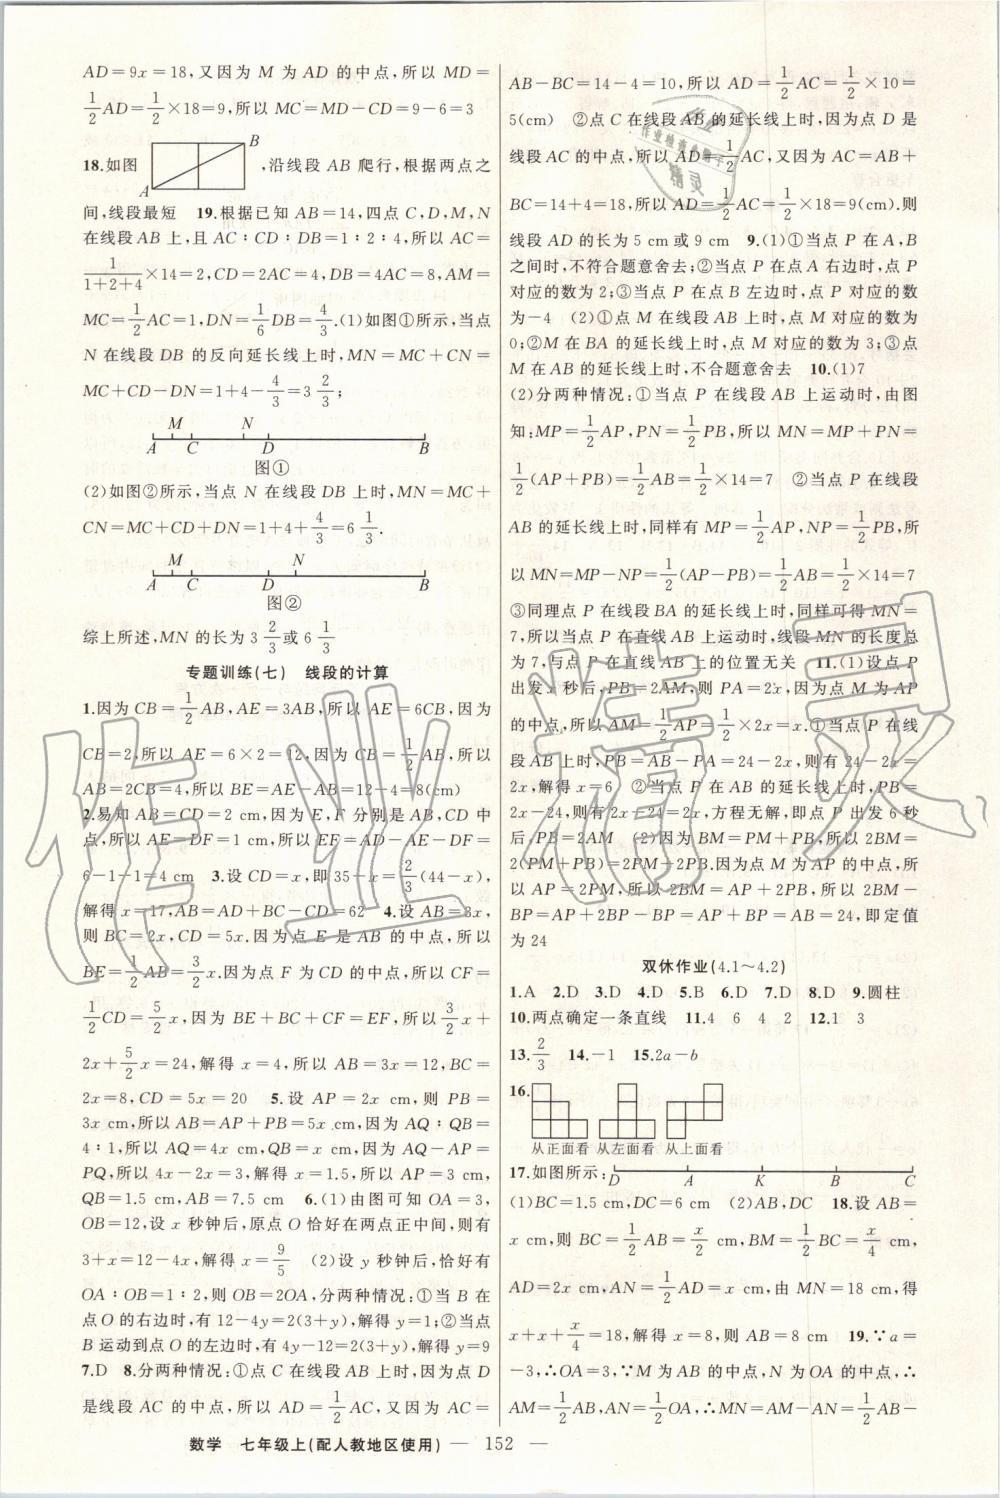 AD=9x=18,又因为 M 为 AD 的中点,所以 MD=
1/2AD=1/2×18=9,所以 MC=MD-CD=9-6=3
18.如图 A B ,沿线段 AB 爬行,根据两点之
间,线段最短 19.根据已知 AB=14,四点 C,D,M,N
在线段 AB 上,且 AC∶CD∶DB=1∶2∶4,所以 AC=
1/(1+2+4)×14=2,CD=2AC=4,DB=4AC=8,AM=
MC=1/2AC=1,DN=1/6DB=4/3.(1)如图①所示,当点
N 在线段 DB 的反向延长线上时,MN=MC+CN=
MC+CD-DN=1+4-4/3=3 2/3;
M N
A C D B
图①
(2)如图②所示,当点 N 在线段 DB 上时,MN=MC+
CN=MC+CD+DN=1+4+4/3=6 1/3.
M N
A C D B
图②
综上所述,MN 的长为 3 2/3 或 6 1/3
专题训练(七) 线段的计算
1.因为 CB=1/2AB,AE=3AB,所以 AE=6CB,因为
CB=2,所以 AE=6×2=12,因为 CB=1/2AB,所以
AB=2CB=4,所以 BE=AE-AB=12-4=8(cm)
2.易知 AB=CD=2 cm,因为 E,F 分别是 AB,CD 中
点,所以 AE=DF=1 cm,所以 EF=AD-AE-DF=
6-1-1=4 cm 3.设 CD=x,即 35-x=2/3(44-x),
解得 x=17,AB=AD+BC-CD=62 4.设 AB=3x,
则 BC=2x,CD=5x.因为点 E 是 AB 的中点,所以
BE=1/2AB=3/2x.因为点 F 为 CD 的中点,所以 CF=
1/2CD=5/2x,因为 BE+BC+CF=EF,所以 3/2x+
2x+5/2x=24,解得 x=4,所以 AB=3x=12,BC=
2x=8,CD=5x=20 5.设 AP=2x cm,则 PB=
3x cm,所以 AB=AP+PB=5x cm.因为 AQ∶QB=
4∶1,所以 AQ=4x cm,QB=x cm.因为 AQ-AP=
PQ,所以 4x-2x=3,解得 x=1.5,所以 AP=3 cm,
QB=1.5 cm,AB=7.5 cm 6.(1)由图可知 OA=3,
OB=12,设 x 秒钟后,原点 O 恰好在两点正中间,则有
3+x=12-4x,解得 x=9/5 (2)设 y 秒钟后,恰好有
OA∶OB=1∶2,则 OB=2OA,分两种情况:①当 B 在
点 O 的右边时,有 12-4y=2(3+y),解得 y=1;②当点
B 运动到点 O 的左边时,有 4y-12=2(3+y),解得 y=9
7.D 8.分两种情况:①点 C 在线段 AB 上时,因为点 D
是线段 AC 的中点,所以 AD=1/2AC,又因为 AC=
AB-BC=14-4=10,所以 AD=1/2AC=1/2×10=
5(cm) ②点 C 在线段 AB 的延长线上时,因为点 D 是
线段 AC 的中点,所以 AD=1/2AC,又因为 AC=AB+
BC=14+4=18,所以 AD=1/2AC=1/2×18=9(cm).则
线段 AD 的长为 5 cm 或 9 cm 9.(1)①当点 P 在 A,B
之间时,不符合题意舍去;②当点 P 在点 A 右边时,点 P
对应的数为 2;③当点 P 在点 B 左边时,点 P 对应的数
为-4 (2)①点 M 在线段 AB 上时,点 M 对应的数为
0;②M 在 BA 的延长线上时,点 M 对应的数为 3;③点
M 在 AB 的延长线上时,不合题意舍去 10.(1)7
(2)分两种情况:①当点 P 在线段 AB 上运动时,由图
知:MP=1/2AP,PN=1/2PB,所以 MN=MP+PN=
1/2(AP+PB)=1/2AB=1/2×14=7 ②当点 P 在线段
AB 的延长线上时,同样有 MP=1/2AP,NP=1/2PB,所
以 MN=MP-NP=1/2(AP-PB)=1/2AB=1/2×14=7
③同理点 P 在线段 BA 的延长线上时,同样可得 MN=
7,所以当点 P 在直线 AB 上运动时,线段 MN 的长度总
为 7,与点 P 在直线 AB 上的位置无关 11.(1)设点 P
出发 x 秒后,PB=2AM,则 PA=2x,因为点 M 为 AP
的中点,所以 AM=1/2AP=1/2×2x=x.①当点 P 在线
段 AB 上时,PB=AB-PA=24-2x,则有 24-2x=
2x,解得 x=6 ②当点 P 在 AB 的延长线上时,PB=
2x-24,则有 2x-24=2x,方程无解,即点 P 出发 6 秒
后,PB=2AM (2)因为 BM=PM+PB,所以 2BM=
2(PM+PB)=2PM+2PB.因为点 M 为 AP 的中点,所
以 AP=2PM,所以 2BM=AP+2PB,所以 2BM-
BP=AP+2BP-BP=AP+BP=AB=24,即定值
为 24
双休作业(4.1~4.2)
1.A 2.D 3.D 4.D 5.B 6.D 7.D 8.D 9.圆柱
10.两点确定一条直线 11.4 6 4 2 12.1 3
13.2/3 14.-1 15.2a-b
16.
从正面看 从左面看 从上面看
17.如图所示: D A K B C
(1)BC=1.5 cm,DC=6 cm (2)AB,DC 18.设 AB=
x cm,则 BC=1/2AB=x/2 cm,BM=1/2BC=x/4 cm,
AD=2x cm,AN=1/2AD=x cm,由 MN=18 cm,得
x+x+x/4=18,解得 x=8,则 AB=8 cm 19.∵a=
-3,∴OA=3,∵M 为 AB 的中点,N 为 OA 的中点,∴
AM=1/2AB,AN=1/2OA,∴MN=AM-AN=1/2AB-
数学 七年级上(配人教地区使用) — 152 —
作业精灵
作业检查小助手
精灵